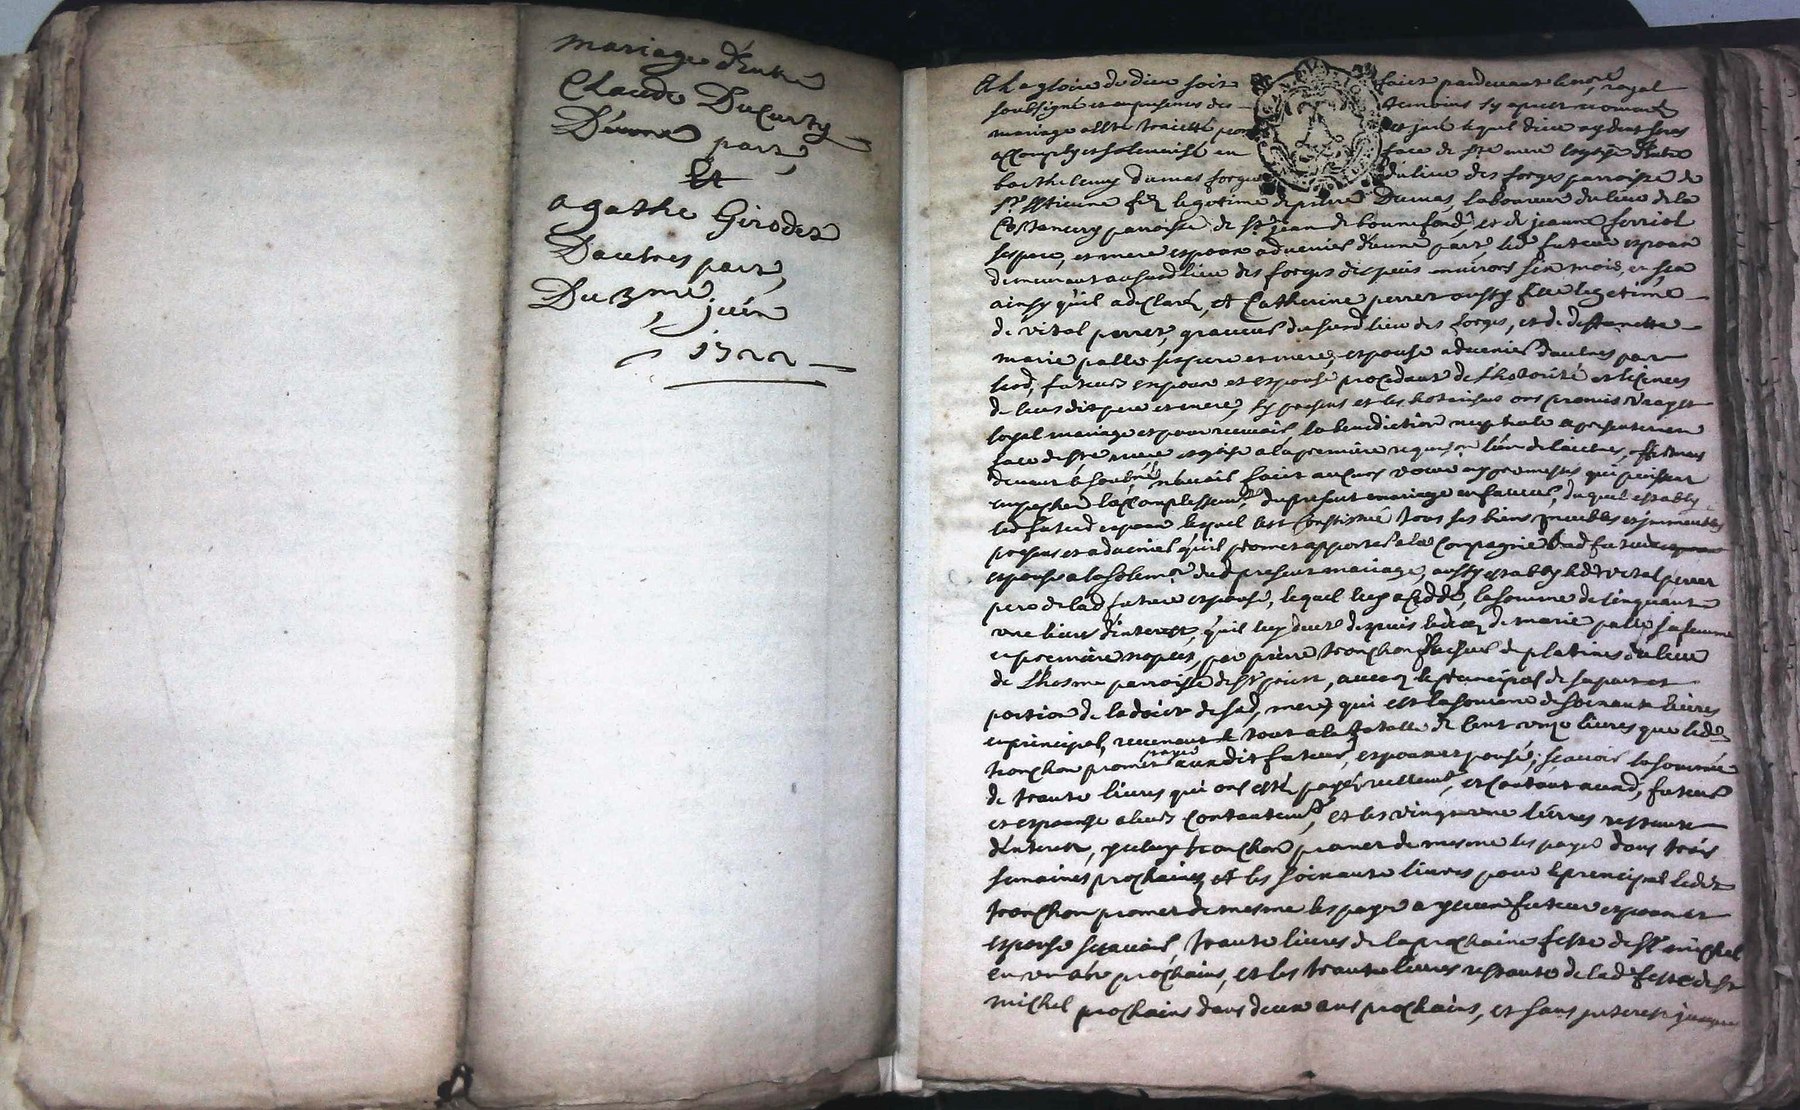 mariage d'Entre
Claude DuCurty
D'eune part,
Et
agathe Girodet
D'autres part,
Du 3me juin
1722
A la gloire de dieu soit faict pardevant le nore royal
soubsigné et en presence des temoins cy apres nommés
mariage a esté traicté et juré lequel dieu aydant sera
accomply et solennisé en face de ste mere esglize d'Entre
barthelemy dumas forgeur du lieu des forges parroisse de
st Estienne fils legetime de pierre Dumas laboureur du lieu de la
parroisse de st jean de bonnefond, et de jeanne ferriol
ses pere, et mere espoux advenir d'eune part led futeur espoux
demeurant ausurd lieu des forges despuis environs six mois,
ainsy qu'il a declaré, et Catherine perret aussy fille legetime
de vital perret, graveur dusurd lieu des forges, et de deffuncte
marie palle ses pere et mere, espouse advenir d'autres part
lesd, futeurs espoux et espouse procedant de l'hotorité et licences
de leurs dit pere et mere, cy presens et les hotorisans ont promis vray et
loyal mariage et pour recevoir la benediction nuptiale se presenter en
face de ste mere esglize a la premiere requision l'un de l'autres, affirmans
devant le soubsé n'avoir faict aucuns voeux ny promesses qui puissent
empecher l'accomplissemt du present mariage en faveur, duquel establÿ
led futeur espoux lequel s'est constitué tous ses biens meubles et immeubles
presens et advenir qu'il promet apporter a la compagnie de lad future
espouse a la solemon dud present mariage, aussy establÿ led vital perret
pere de lad future espouse, lequel luy a ceddé, la somme de cinquante
une livres d'interest, qu'il luy doict depuis le deces de marie palle sa femme
en premiere nopces, par pierre tronchon de platines du lieu
de L'hosme parroisse de st priest, avecq le principal de sa part et
portion de la doict de sad, mere, qui est la somme de soixante livres
en principal, revenant le tout a la totalle de cent unze livres que led
tronchon promet payer auxdit futeurs, espoux et espouse, sçavoir la somme
de trante livres qui ont esté payés reellemt, et contant auxd, futeurs
et espouse a leurs contantemt, et les vingt une livres restante
d'interest, yceluy tronchon promet de mesme les payer dans trois
semaines prochaines et les soixante livres pour le principal ledit
tronchon promet de mesme les payer a yceux futeur espoux et
espouse sçavoir trante livres de la prochaine feste de st michel
en un an prochains, et les trante livres restante de lad feste de st
michel prochains dans deux ans prochains, et sans interest jusques